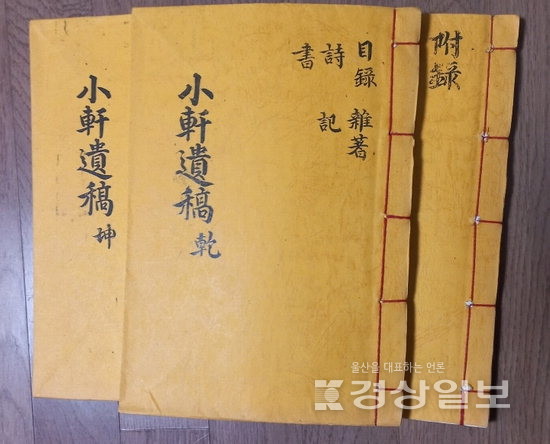 小軒遺稿 坤
小軒遺稿 乾
目錄 雜著
詩 記
書
附錄
울산을 대표하는 언론
경상일보